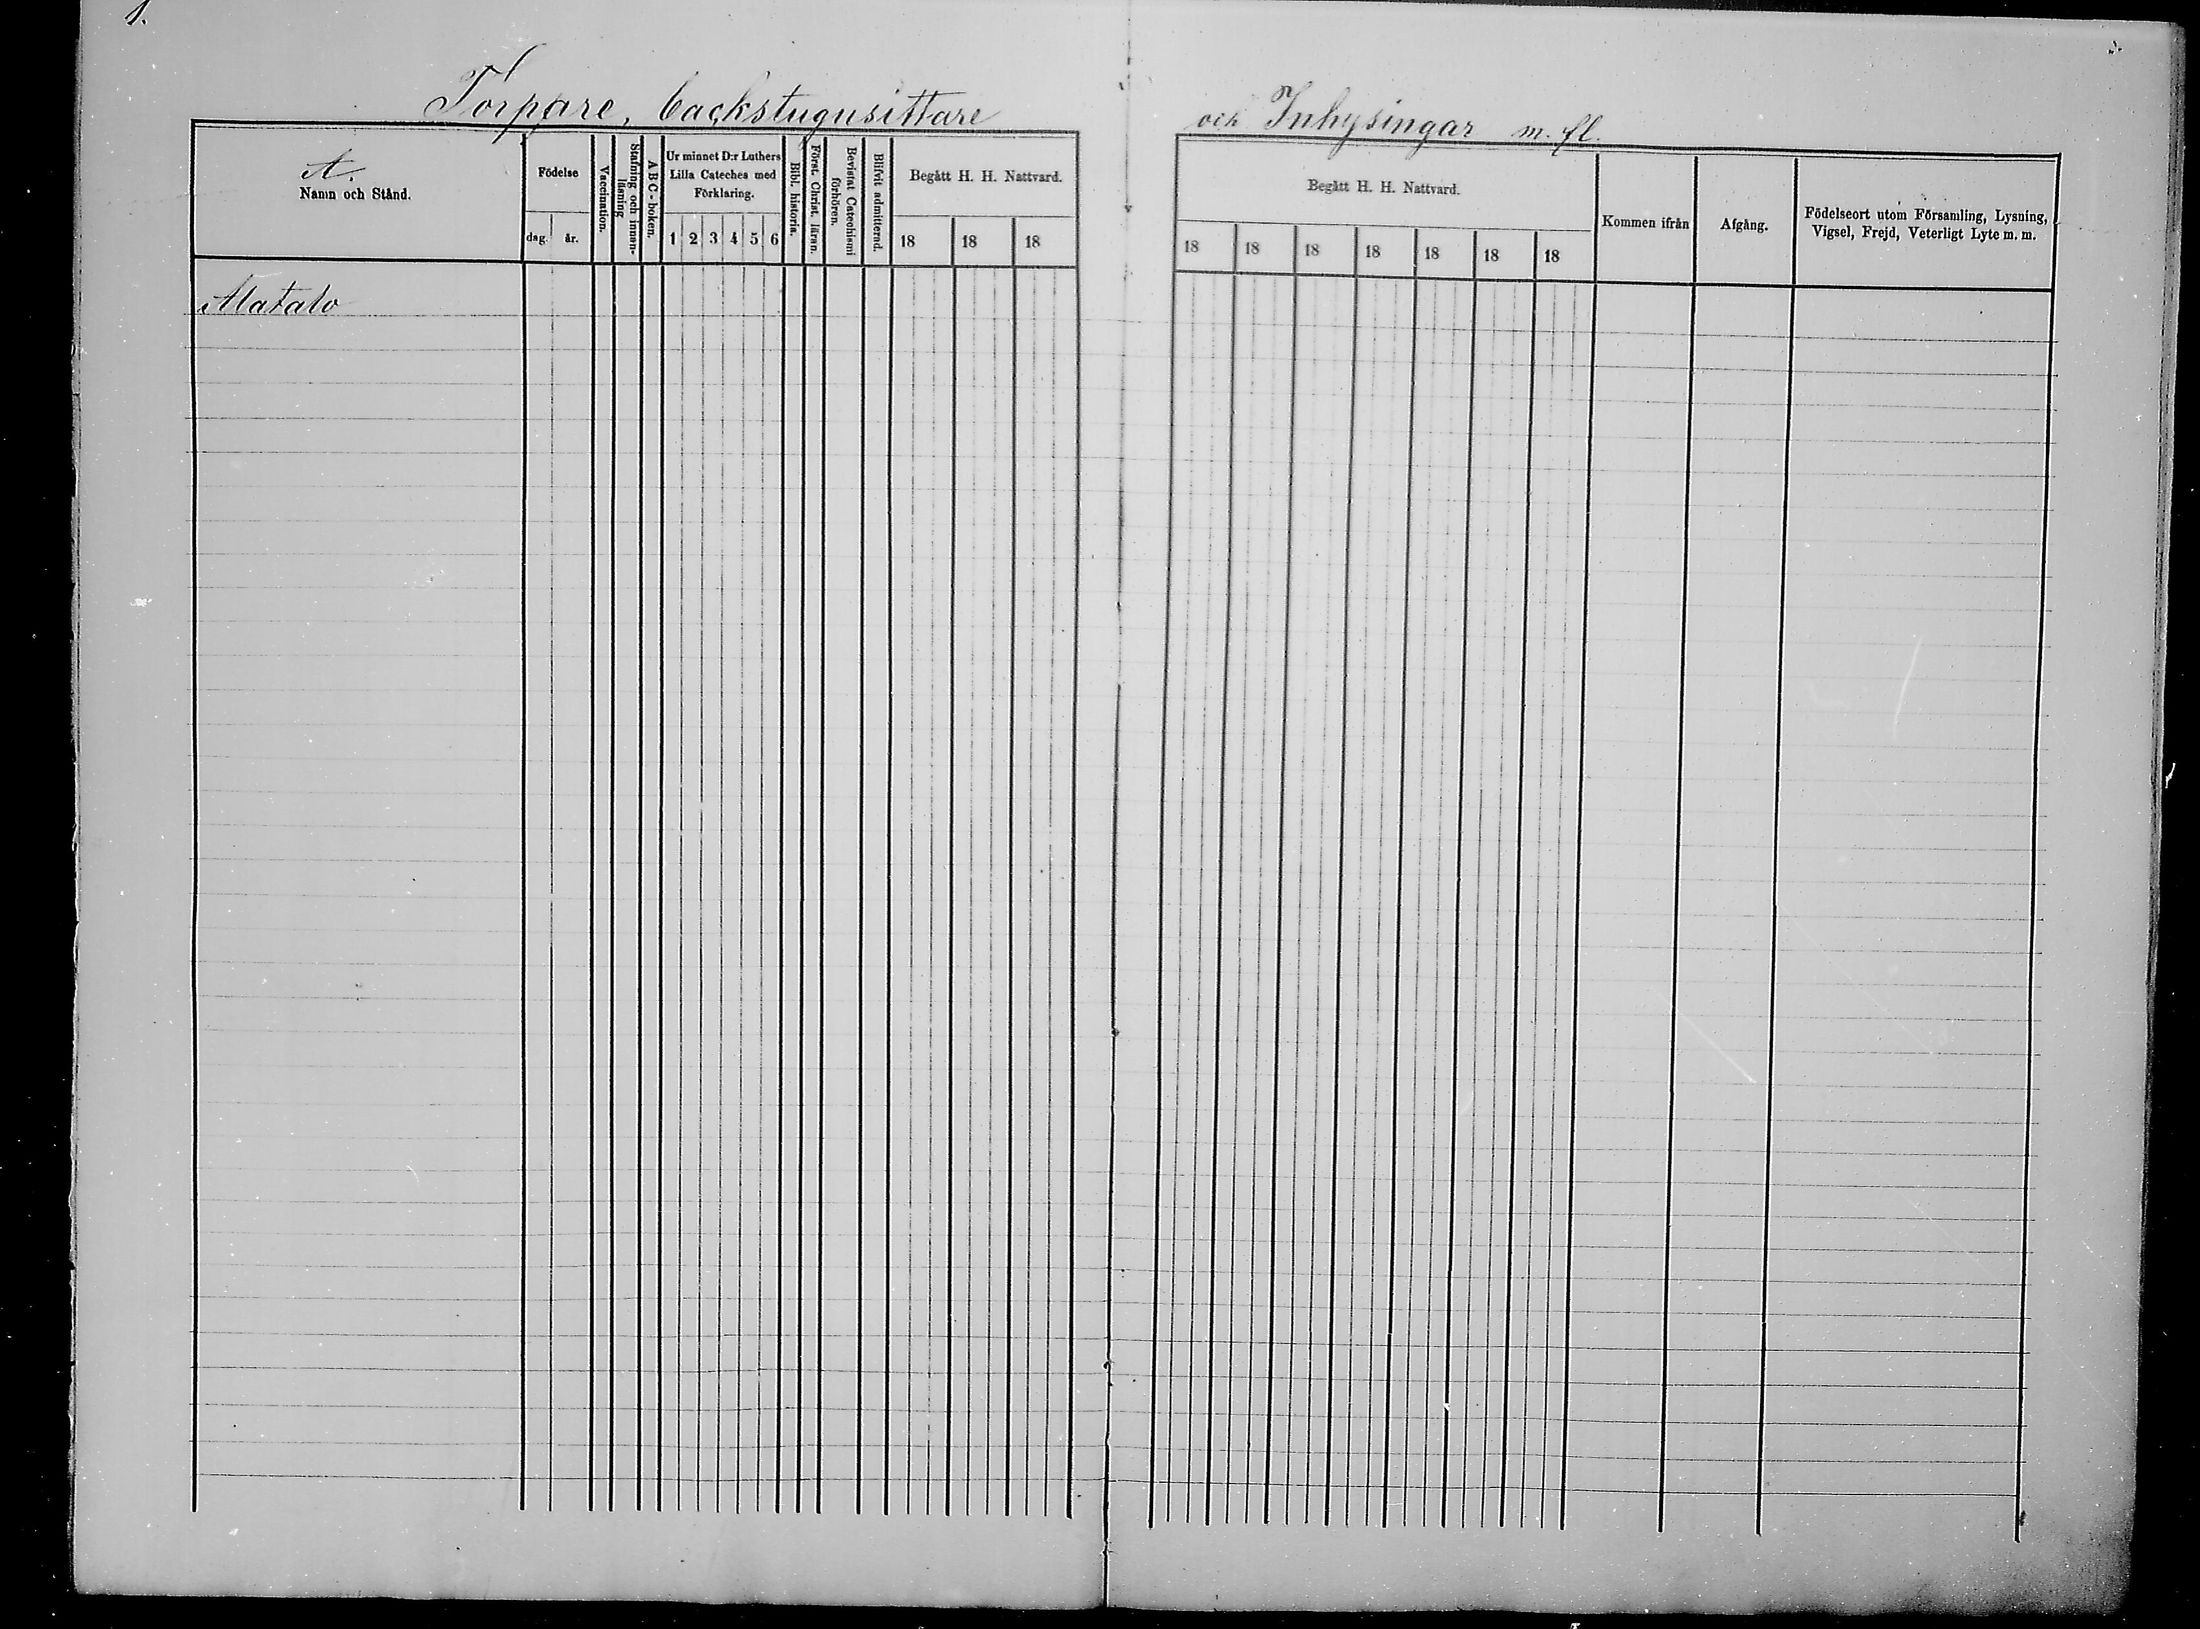 1.
Torpare, backstugusittare och Inhysingar m. fl.
A.
Namn och Stånd.
Födelse
dag. år.
Vaccination.
Stafning och innan-
läsning
A B C - boken.
Ur minnet D:r Luthers
Lilla Cateches med
Förklaring.
1 2 3 4 5 6
Bibl. historia.
Först. Christ. läran.
Bevistat Catechismi
förhören.
Blifvit admitterad.
Begått H. H. Nattvard.
18 18 18
Begått H. H. Nattvard.
18 18 18 18 18 18 18
Kommen ifrån
Afgång.
Födelseort utom Församling, Lysning,
Vigsel, Frejd, Veterligt Lyte m. m.
Alatalo